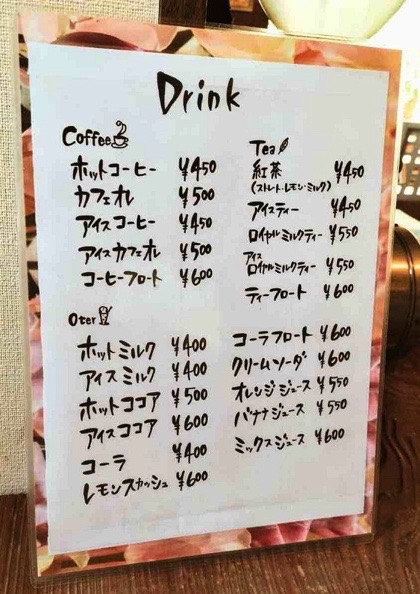 Drink
Coffee
ホットコーヒー ¥450
カフェオレ ¥500
アイスコーヒー ¥450
アイスカフェオレ ¥500
コーヒーフロート ¥600
Tea
紅茶 ¥450
(ストレート・レモン・ミルク)
アイスティー ¥450
ロイヤルミルクティー ¥550
アイス
ロイヤルミルクティー ¥550
ティーフロート ¥600
Oter
ホットミルク ¥400
アイスミルク ¥400
ホットココア ¥500
アイスココア ¥600
コーラ ¥400
レモンスカッシュ ¥600
コーラフロート ¥600
クリームソーダ ¥600
オレンジジュース ¥550
バナナジュース ¥550
ミックスジュース ¥600